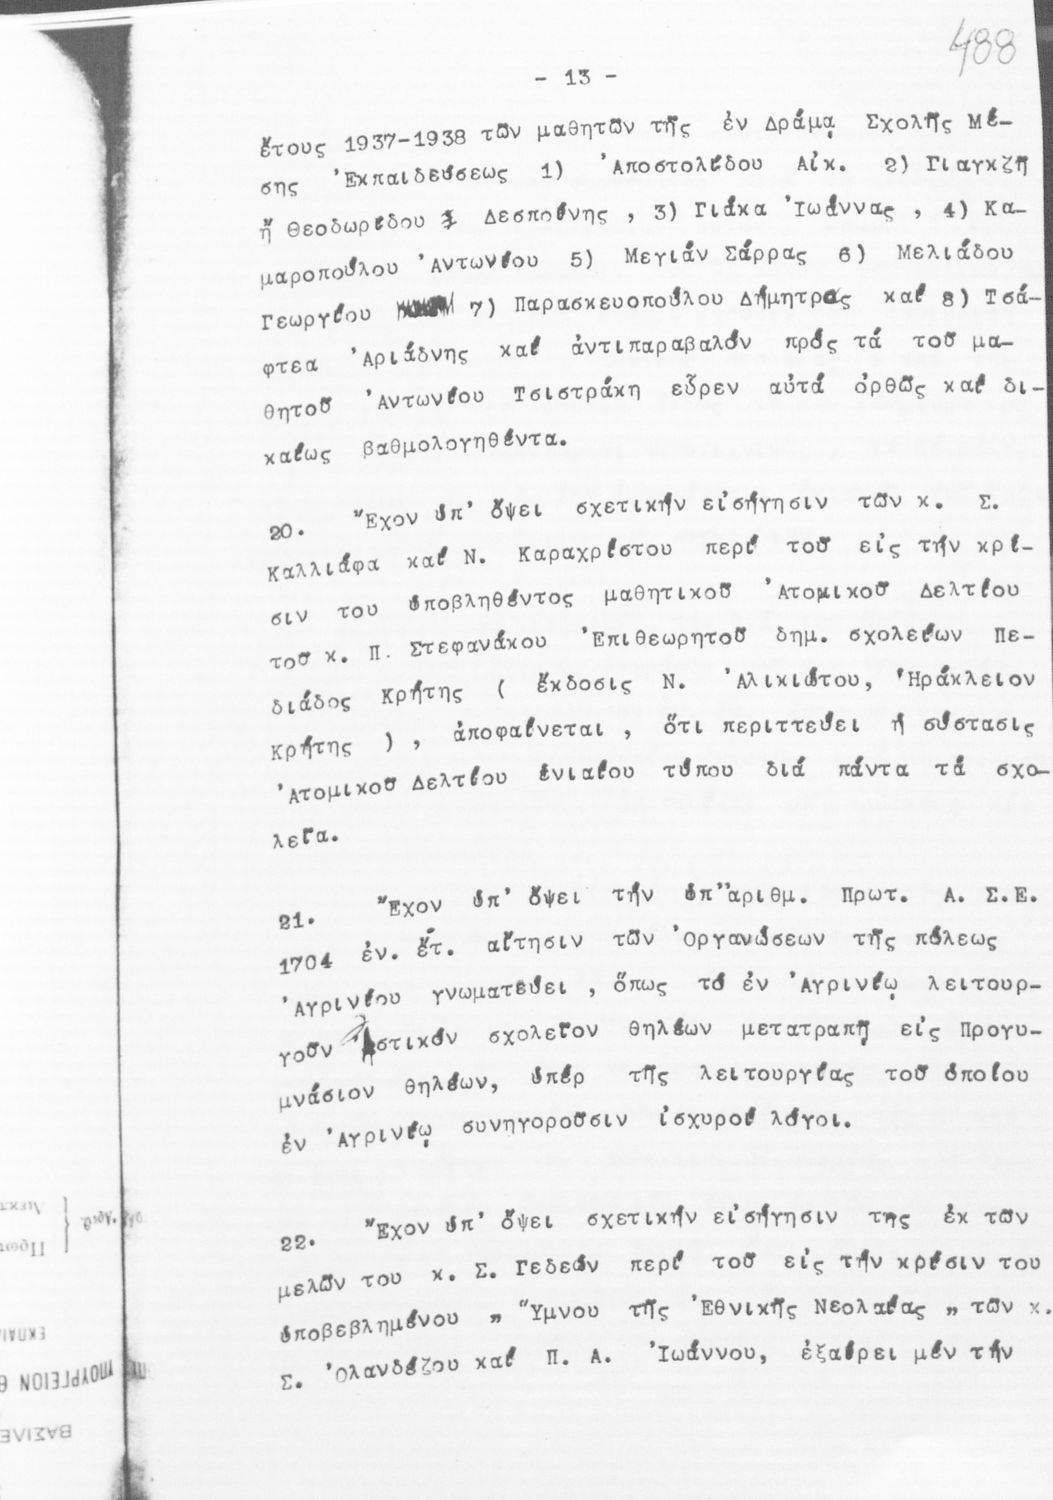 488
- 13 -
ἔτους 1937-1938 τῶν μαθητῶν τῆς ἐν Δράμᾳ Σχολῆς Μέ-
σης Ἐκπαιδεύσεως 1) Ἀποστολίδου Αἰκ. 2) Γιαγκζῆ
ἤ Θεοδωρίδου Δεσποίνης , 3) Γιάκα Ἰωάννας , 4) Κα-
μαροπούλου Ἀντωνίου 5) Μεγιάν Σάρρας 6) Μελιάδου
Γεωργίου 7) Παρασκευοπούλου Δήμητρας καί 8) Τσά-
φτεα Ἀριάδνης καί ἀντιπαραβαλόν πρός τά τοῦ μα-
θητοῦ Ἀντωνίου Τσιστράκη εὗρεν αὐτά ὀρθῶς καί δι-
καίως βαθμολογηθέντα.
20. Ἔχον ὑπ' ὄψει σχετικήν εἰσήγησιν τῶν κ. Σ.
Καλλιάφα καί Ν. Καραχρίστου περί τοῦ εἰς τήν κρί-
σιν του ὑποβληθέντος μαθητικοῦ Ἀτομικοῦ Δελτίου
τοῦ κ. Π. Στεφανάκου Ἐπιθεωρητοῦ δημ. σχολείων Πε-
διάδος Κρήτης ( ἔκδοσις Ν. Ἀλικιώτου, Ἡράκλειον
Κρήτης ) , ἀποφαίνεται , ὅτι περιττεύει ἡ σύστασις
Ἀτομικοῦ Δελτίου ἑνιαίου τύπου διά πάντα τά σχο-
λεῖα.
21. Ἔχον ὑπ' ὄψει τήν ὑπ' ἀριθμ. Πρωτ. Α. Σ.Ε.
1704 ἐν. ἔτ. αἴτησιν τῶν Ὀργανώσεων τῆς πόλεως
Ἀγρινίου γνωματεύει , ὅπως τό ἐν Ἀγρινίῳ λειτουρ-
γοῦν Ἀστικόν σχολεῖον θηλέων μετατραπῇ εἰς Προγυ-
μνάσιον θηλέων, ὑπέρ τῆς λειτουργίας τοῦ ὁποίου
ἐν Ἀγρινίῳ συνηγοροῦσιν ἰσχυροί λόγοι.
22. Ἔχον ὑπ' ὄψει σχετικήν εἰσήγησιν της ἐκ τῶν
μελῶν του κ. Σ. Γεδεών περί τοῦ εἰς τήν κρίσιν του
ὑποβεβλημένου „ Ὕμνου τῆς Ἐθνικῆς Νεολαίας „ τῶν κ.
Σ. Ὀλανδέζου καί Π. Α. Ἰωάννου, ἐξαίρει μέν τήν
ΥΠΟΥΡΓΕΙΟΝ Θ
ΒΑΣΙΛΕ